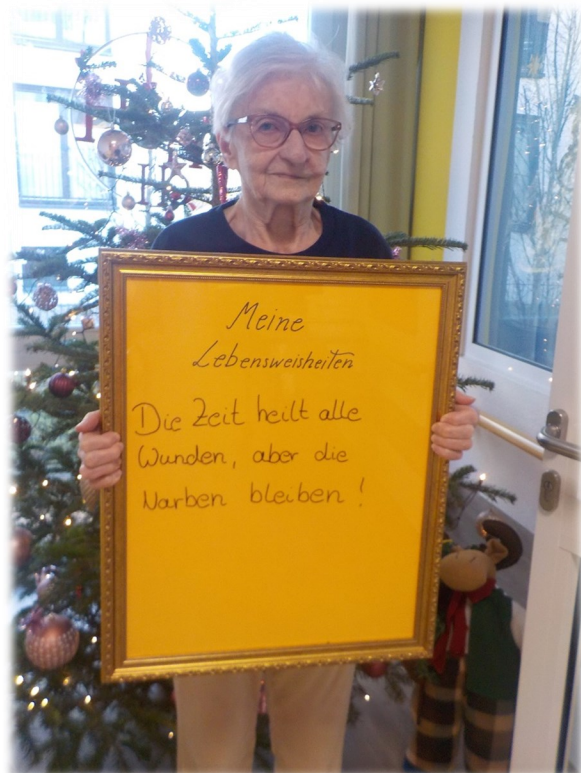 Meine
Lebensweisheiten
Die Zeit heilt alle
Wunden, aber die
Narben bleiben !